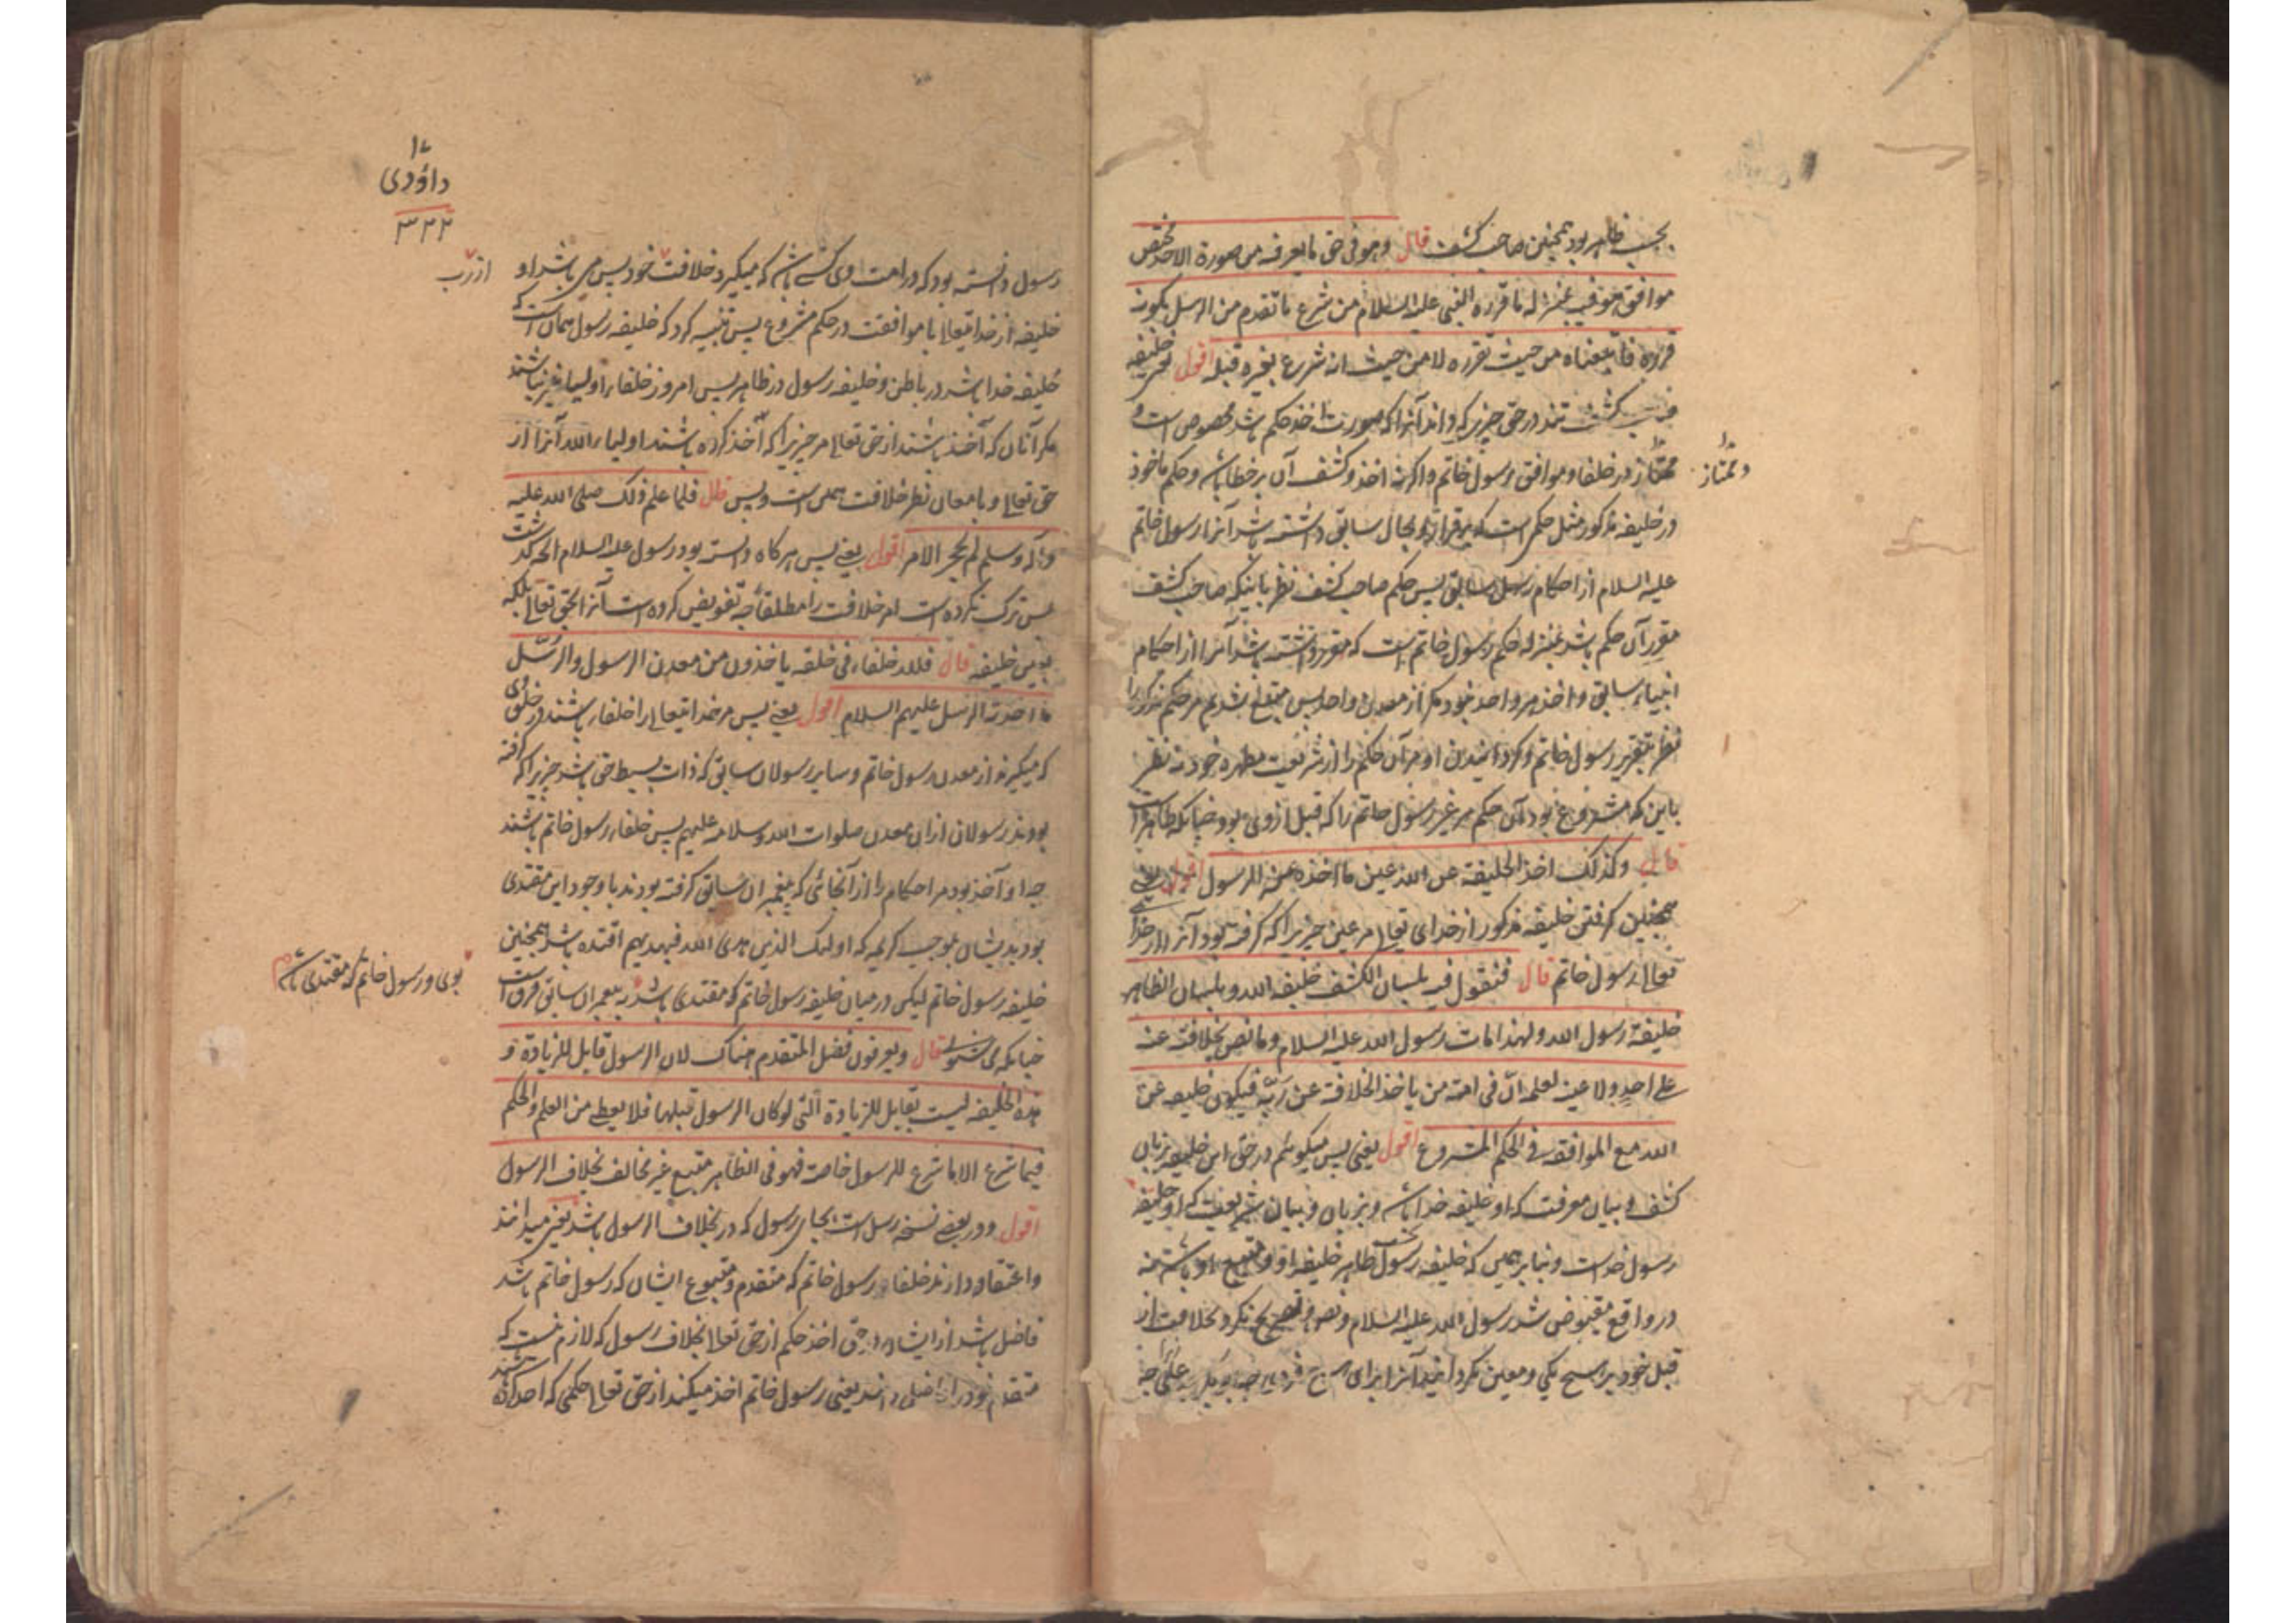 بحسب ظاهر بود همچنین صاحب کشف قال وهو فی حق ما یعرفه من صورة الاخذ مختص
موافق هو فیه بمنزلة ما قرره النبی علیه السلام من شرع ما تقدم من الرسل بکونه
قرره فاتبعناه من حیث تقرره لا من حیث انه شرع لغیره قبله اقول خلیفه
کشف در حق چیزیکه داند آنرا که صورت اخذ حکم باشد مخصوص است و
ممتاز در خلفا و موافق رسول خاتم و اگرنه اخذ و کشف آن بر خطا باشد و حکم ماخوذ
و ممتاز
در خلیفه مذکور مثل حکمی است که برقرار و بحال سابق داشته باشد آنرا رسول خاتم
علیه السلام از احکام رسل سابق پس حکم صاحب کشف نظر باینکه صاحب کشف
مقرر آن حکم باشد بمنزله حکم رسول خاتم است که مقرر داشته باشد آنرا از احکام
انبیاء سابق و اخذ هر واحد نبود مگر از معدن واحد پس متبع باشدیم مر حکم مذکور را
نظر بتقریر رسول خاتم و گردانیدن او مر آن حکم را از شریعت مطهره خود نه نظر
باین که مشروع بود آن حکم مر غیر رسول خاتم را که قبل از وی بود چنانکه ظاهر است
قال وکذلک اخذ الخلیفة عن الله عین ما اخذه منه الرسول اقول یعنی
همچنین گرفتن خلیفه مذکور از خدای تعالی مر عین چیزیرا که گرفته بود آنرا از خدا
تعالی رسول خاتم قال فنقول فیه بلسان الکشف خلیفة الله و بلسان الظاهر
خلیفة رسول الله ولهذا مات رسول الله علیه السلام وما نص بخلافة عنه
علی احد ولا عینه لعلمه ان فی امته من یاخذ الخلافة عن ربه فیکون خلیفه عن
الله مع الموافقه فی الحکم المشروع اقول یعنی پس میگوئیم در حق این خلیفه بزبان
کشف و بیان معرفت که او خلیفه خدا باشد و بزبان و بیان شریعت که او خلیفه
رسول خداست و بنابر همین که خلیفه رسول بحسب ظاهر خلیفه او و متبع او باشد نه
در واقع مقبوض شد رسول الله علیه السلام و نص و تصریح نکرد بخلافت از
قبل خود بر هیچ یکی و معین نگردانید آنرا برای هیچ فردی
۱۷
داؤدی
۳۲۲
رسول دانسته بود که در امت وی کسی باشد که میگیرد خلافت خود پس می باشد او
از رب
خلیفه از خدایتعالی با موافقت در حکم مشروع پس تنبیه کرد که خلیفه رسول همان است که
خلیفه خدا باشد در باطن و خلیفه رسول در ظاهر پس امروز خلفاء اولیا نیز نباشند
مگر آنان که آخذ باشند از حق تعالی مر چیزیرا که آخذ کرده باشند اولیاء الله آنرا از
حق تعالی و بامعان نظر خلافت همین است و بس قال فلما علم ذلک صلی الله علیه
وآله وسلم لم یحجر الامر اقول یعنی پس هرگاه دانسته بود رسول علیه السلام
پس ترک نکرده است امر خلافت را مطلقا چه تفویض کرده است آنرا بحق تعالی بلکه
خلیفه قال فلله خلفاء فی خلقه یاخذون من معدن الرسول والرسل
ما اخذته الرسل علیهم السلام اقول یعنی پس مر خدایتعالی را خلفاء باشند در خلق وی
که میگیرند از معدن رسول خاتم و سایر رسولان سابق که ذات بسیط حق باشد چیزیرا که گرفته
بودند رسولان از ان معدن صلوات الله و سلامه علیهم پس خلفاء رسول خاتم باشند
چه او آخذ بود مر احکام را از آنجائی که پیغمبران سابق گرفته بودند با وجود این مقتدی
بود بدیشان بموجب کریمه که اولئک الذین هدی الله فبهدیهم اقتده باشد همچنین
خلیفه رسول خاتم لیکن در میان خلیفه رسول خاتم که مقتدی باشد به پیغمبران سابق فرق است
بوی و رسول خاتم که مقتدی باشد
چنانکه می شنوی قال ویعرفون فضل المتقدم هناک لان الرسول قابل للزیادة و
هذه الخلیفه لیست بقابل للزیادة التی لو کان الرسول قبلها فلا یعطی من العلم والحکم
فیما شرع الا ما شرع للرسول خاصة فهو فی الظاهر متبع غیر مخالف بخلاف الرسول
اقول و در بعضی نسخه رسل است بجای رسول که در بخلاف الرسول باشد یعنی میدانند
و اعتقاد دارند خلفاء رسول خاتم که متقدم و متبوع ایشان که رسول خاتم باشد
فاضل باشد از ایشان در حق اخذ حکم از حق تعالی بخلاف رسول که لازم نیست که
متقدم خود را افضل داند یعنی رسول خاتم اخذ میکند از حق تعالی حکمی که اخذ کرده